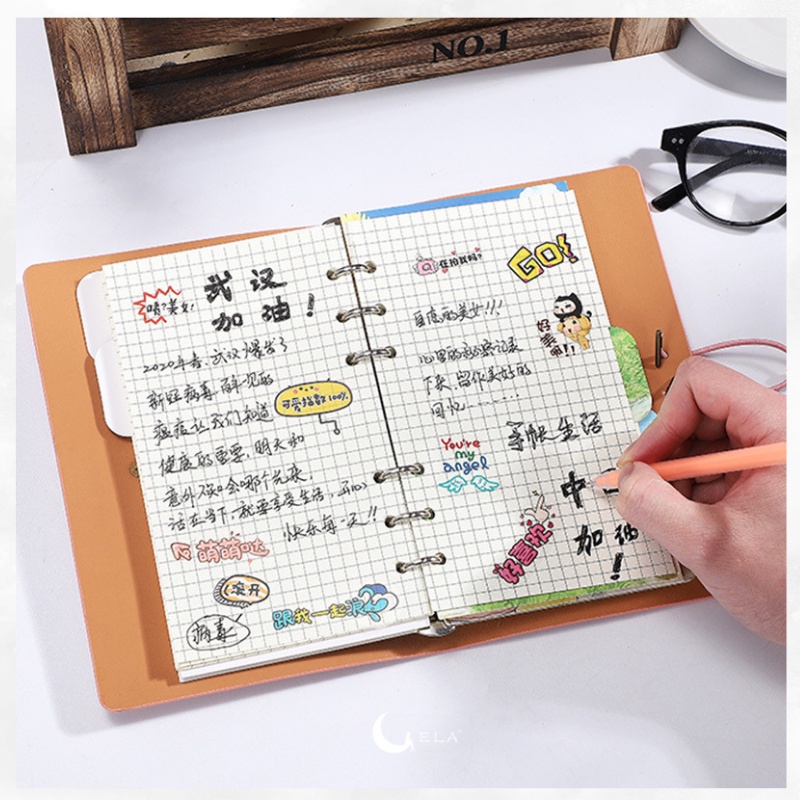 NO.1
武汉
加油!
2020年春,武汉爆发了
新冠病毒,罕见的
瘟疫让我们知道
健康的重要,明天和
意外不知会哪个先来,
活在当下 我要享受生活,
快乐每一天!!
可爱指数100%
萌萌哒
滚开
病毒
跟我一起浪
在拍我吗?
GO!
百度的美女!!!
好美哦!!
下来,留作美好的
回忆......
手帐生活
You're
my
angel
中
加油
!
好喜欢
ELA